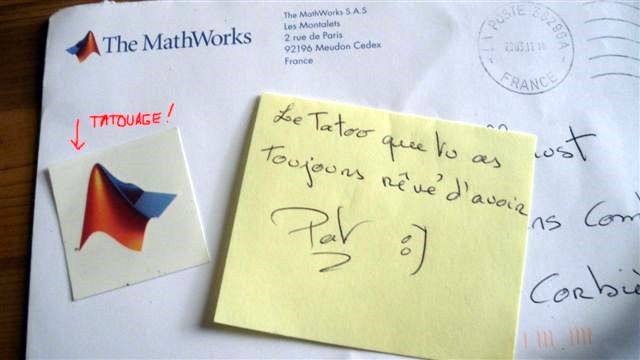 The MathWorks
The MathWorks S.A.S
Les Montalets
2 rue de Paris
92196 Meudon Cedex
France
LA POSTE
FRANCE
TATOUAGE!
Le Tatoo que tu as
toujours rêvé d'avoir
Pat :)
ost
ns Com
Corbiè